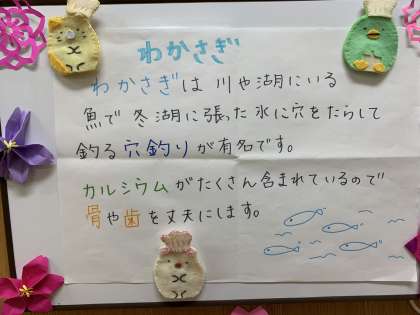 わかさぎ
わかさぎは 川や湖にいる
魚で 冬湖に張った 氷に穴をたらして
釣る 穴釣りが有名です。
カルシウムがたくさん含まれているので
骨や歯を丈夫にします。